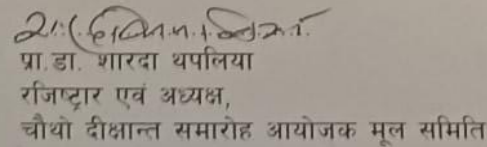 प्रा.डा. शारदा थपलिया
रजिष्ट्रार एवं अध्यक्ष,
चौथो दीक्षान्त समारोह आयोजक मूल समिति